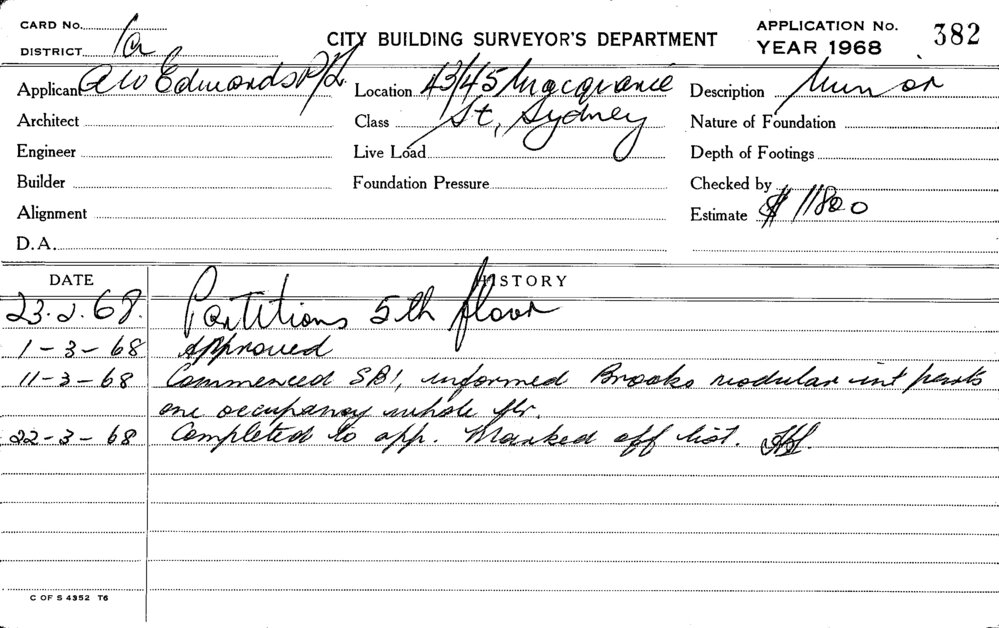 CARD No.
DISTRICT 1a
CITY BUILDING SURVEYOR'S DEPARTMENT
APPLICATION No. 382
YEAR 1968
Applicant AW Edmonds P/L
Location 43/45 Macquarie
Description Minor
Architect
Class St, Sydney
Nature of Foundation
Engineer
Live Load
Depth of Footings
Builder
Foundation Pressure
Checked by
Alignment
Estimate $ 11800
D.A.
DATE HISTORY
23.2.68. Partitions 5th floor
1-3-68 Approved
11-3-68 Commenced SB!, informed Brooks modular int parts
one occupancy whole flr.
22-3-68 Completed to app. Marked off list.
C OF S 4352 T6